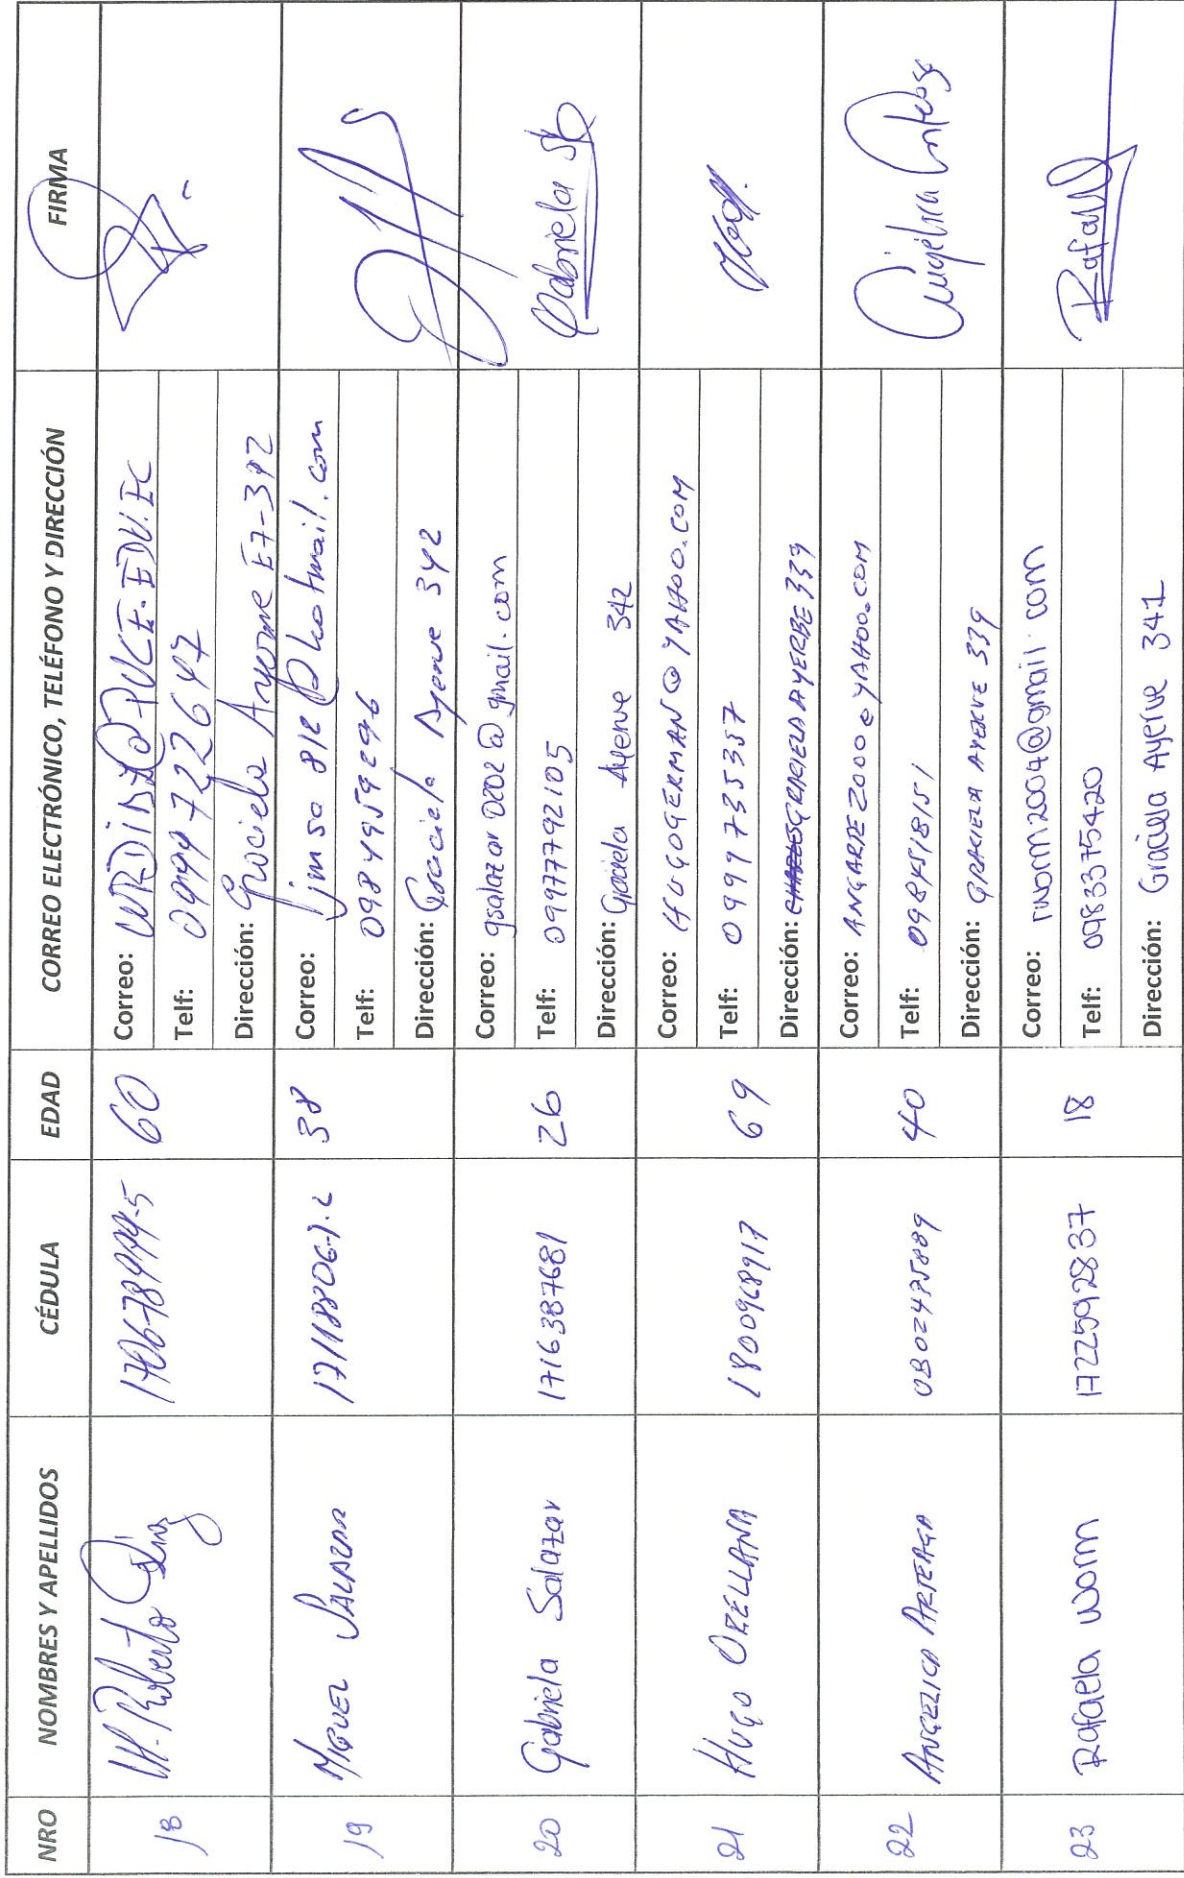 NRO NOMBRES Y APELLIDOS CÉDULA EDAD CORREO ELECTRÓNICO, TELÉFONO Y DIRECCIÓN FIRMA
18 W. Roberto Díaz 60
Correo: WRDIAZ@PUCE.EDU.EC
Telf: 0997722647
Dirección: Graciela Ayerve E7-342
19 MIGUEL SALAZAR 38
Correo: jmsa812@hotmail.com
Telf: 0984959296
Dirección: Graciela Ayerve 342
20 Gabriela Salazar 1716387681 26 Gabriela
Correo: gsalazar0202@gmail.com
Telf: 0997792105
Dirección: Graciela Ayerve 342
21 HUGO ORELLANA 1800968917 69
Correo: HUGOGERMAN@YAHOO.COM
Telf: 099973
Dirección: GRACIELA AYERBE 339
22 ANGELICA ARTEAGA 0802475889 40 Angélica
Correo: ANGARTE2000@YAHOO.COM
Telf: 098
Dirección: GRACIELA AYERVE 339
23 Rafaela Worm 1722592837 18 Rafaela
Correo: rworm2004@gmail.com
Telf: 0983375420
Dirección: Graciela Ayerve 341